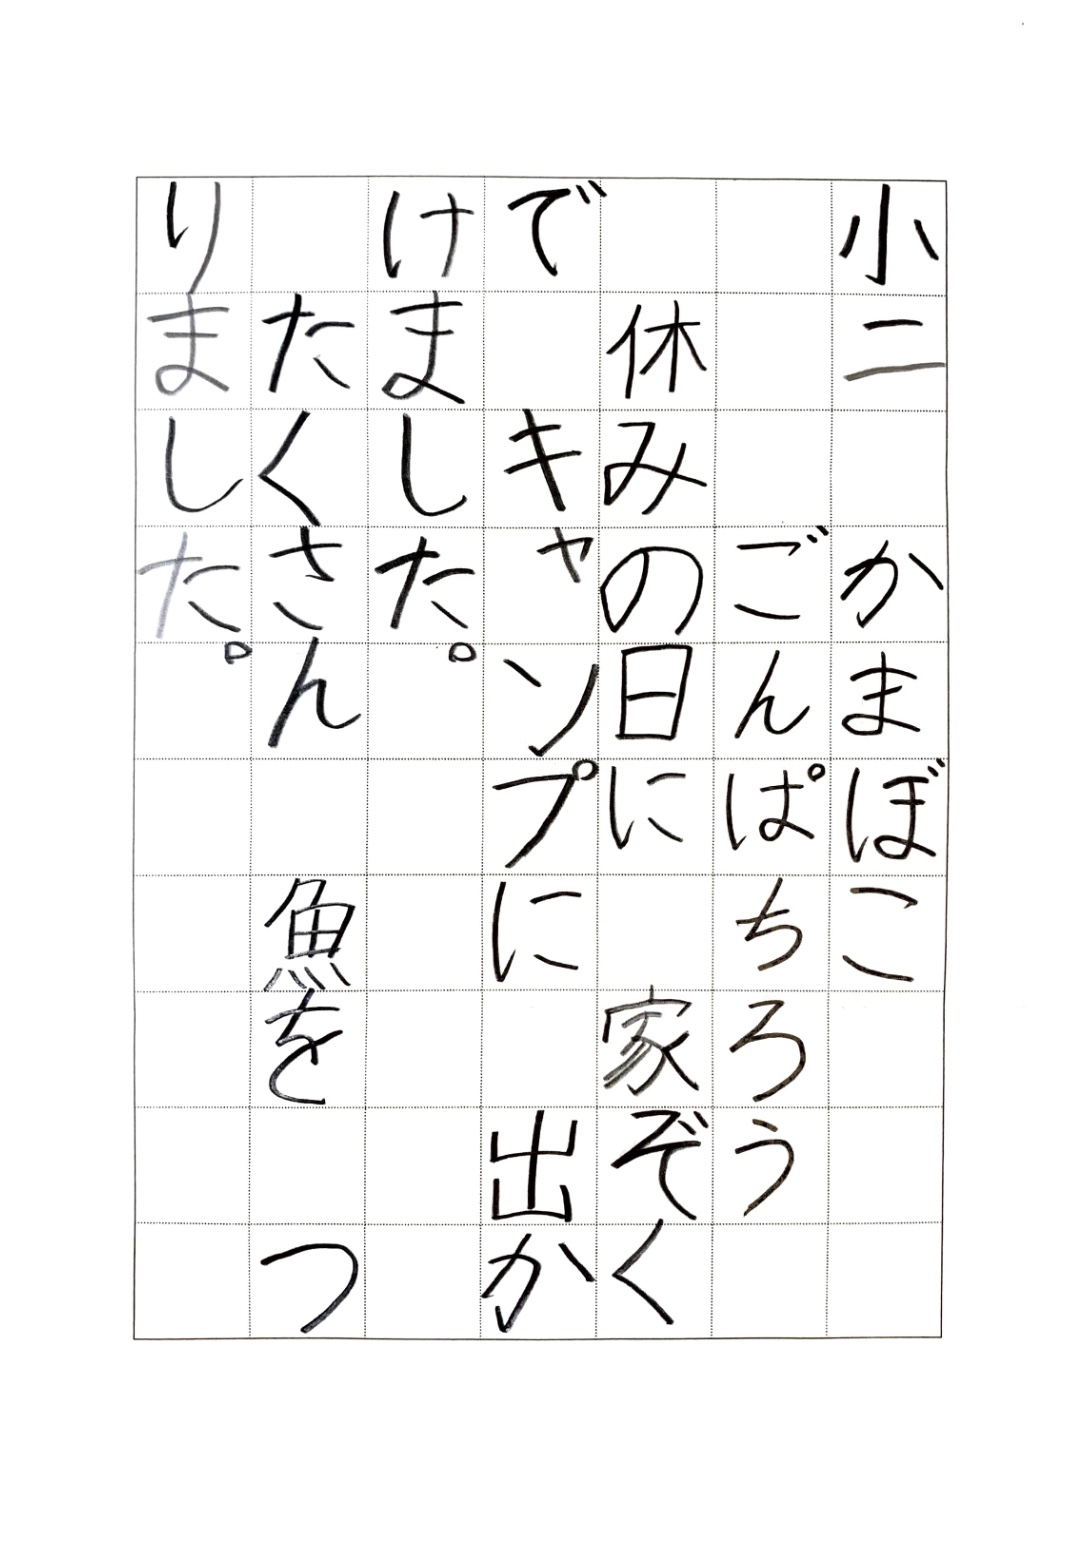 小二　かまぼこ
ごんぱちろう
休みの日に　家ぞく
で　キャンプに　出か
けました。
たくさん　魚を　つ
りました。